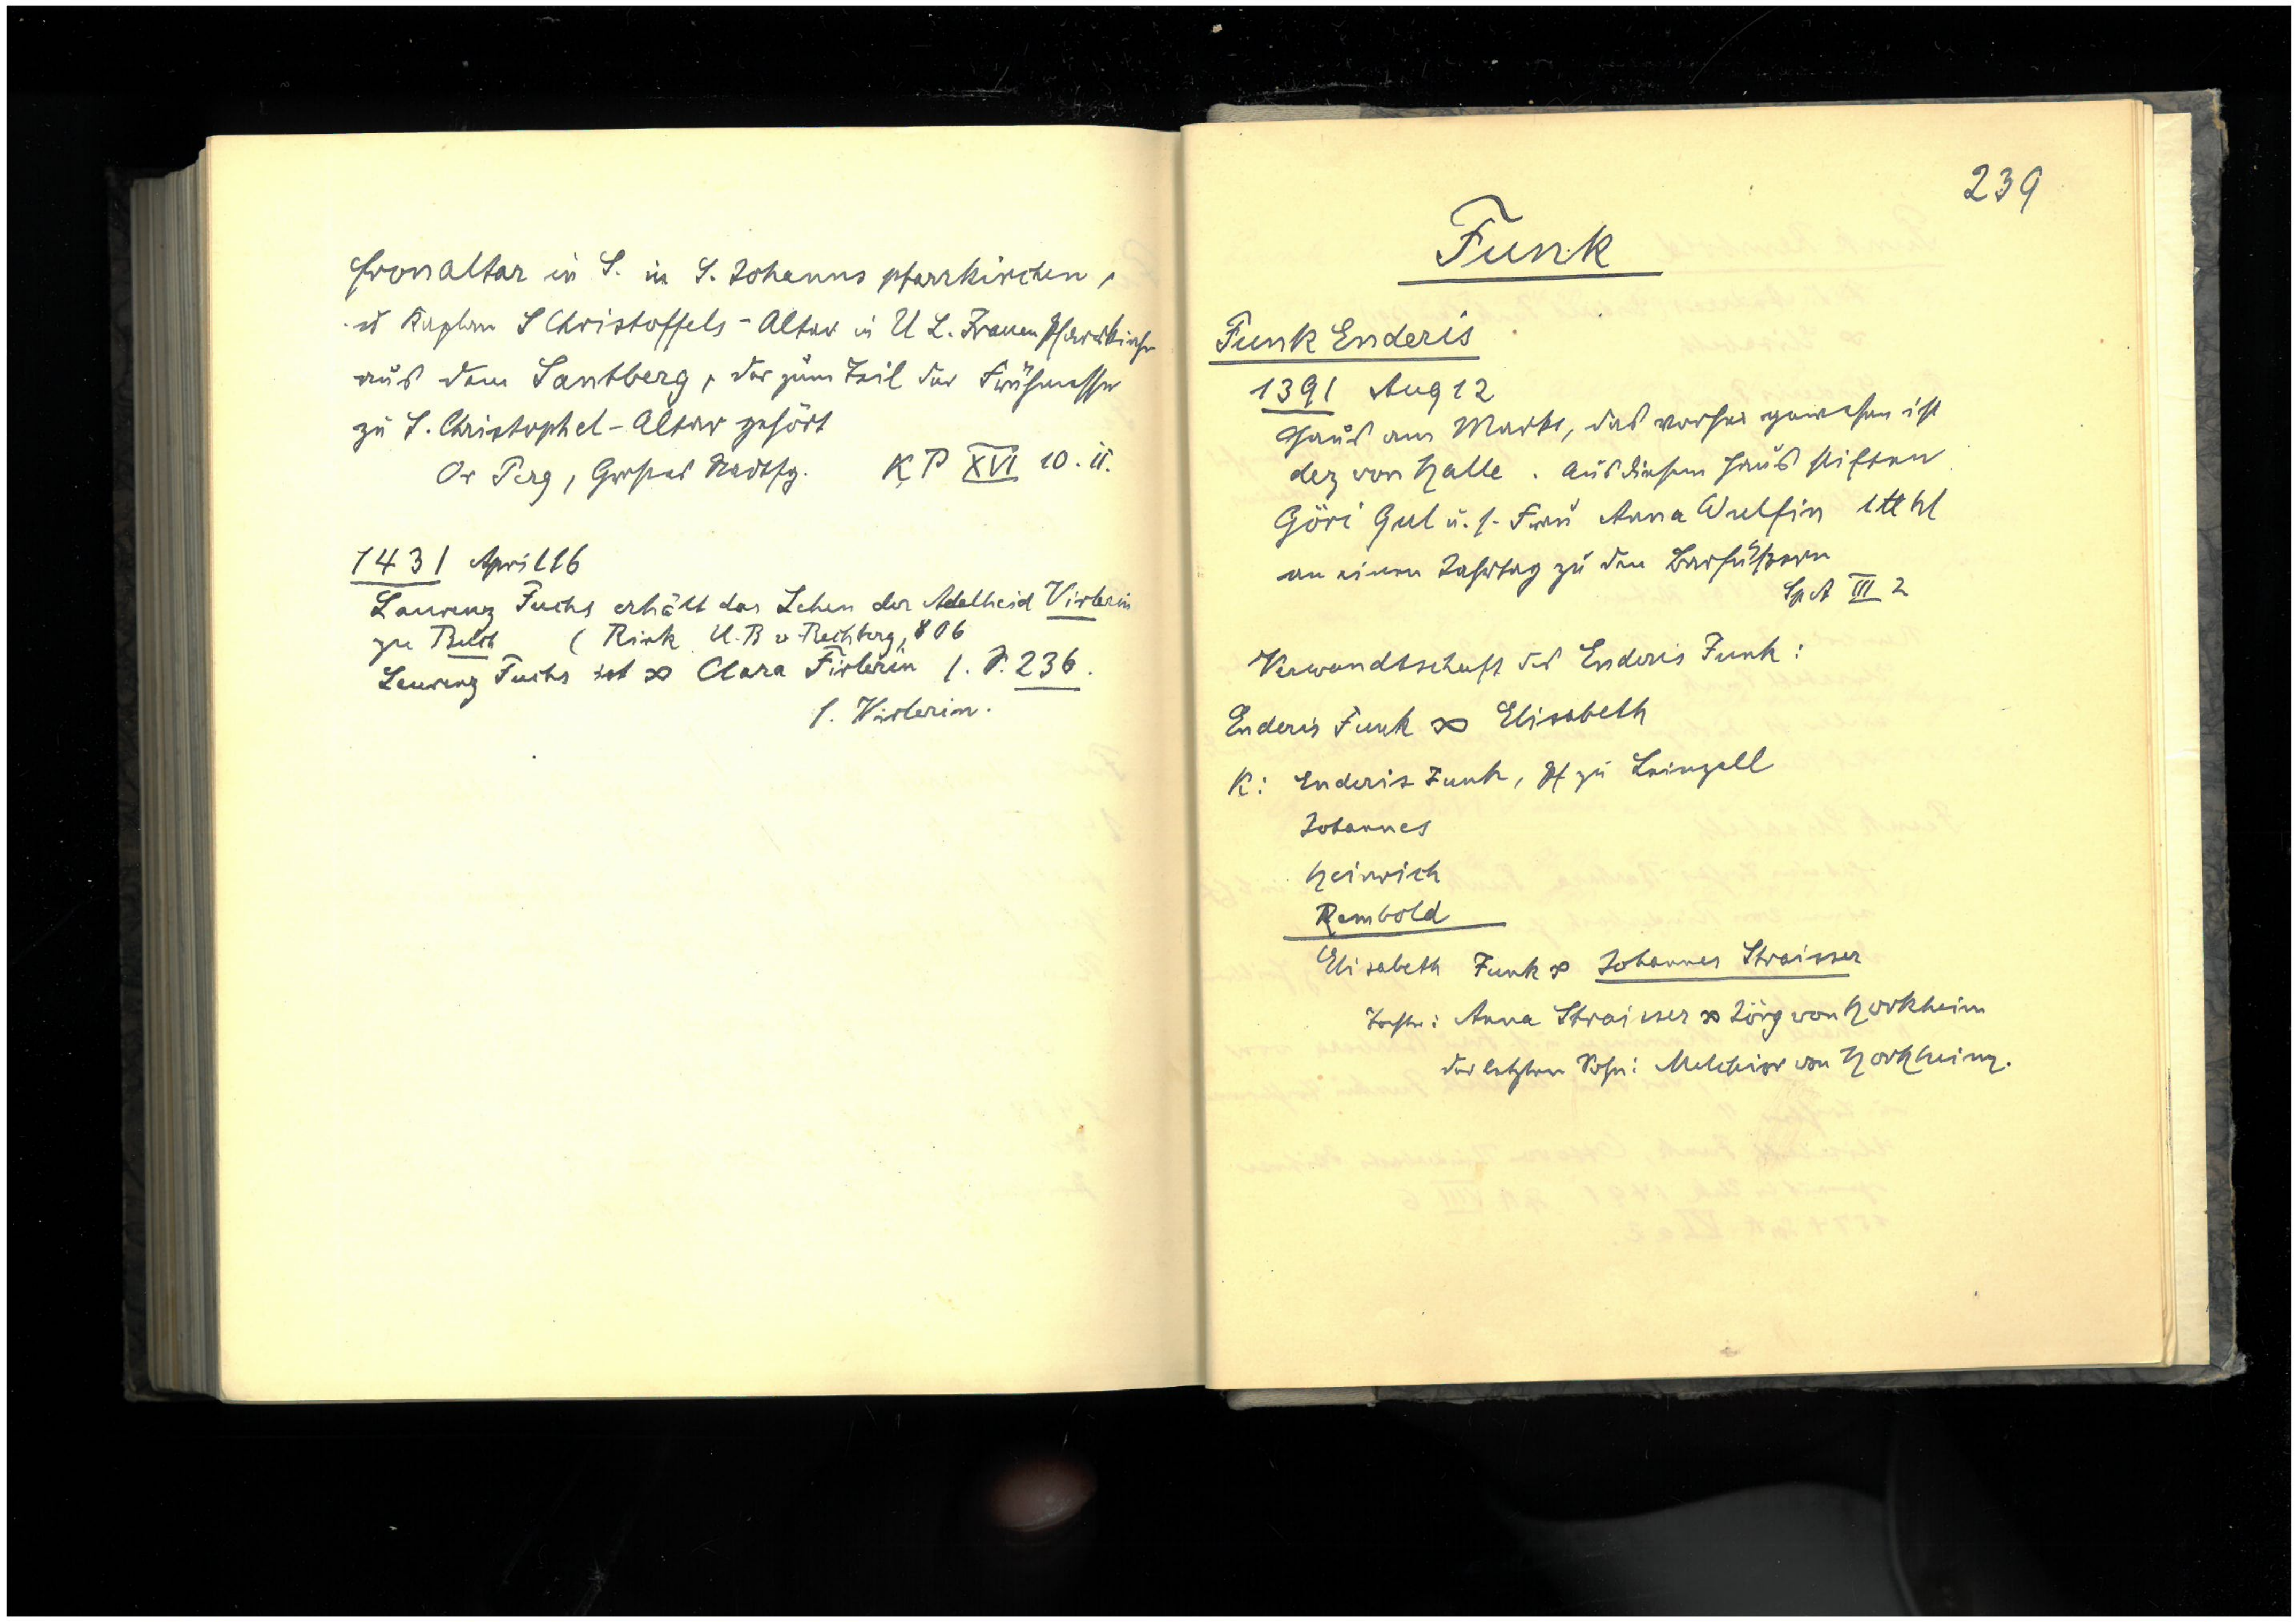 fronaltar in S. in S. Johanns pfarrkirchen,
u Kaplan S Christoffels-Altar in U L. Frauen Pfarrkirche
aus dem Santberg, der zum Teil der Frühmesse
zu S. Christophel-Altar gehört
Or Perg, KP XVI 10. u.
1431 April 16
Laurenz Fuchs erhält das Lehen der Adelheid Virlerin
zu (Rink U.B v. Rechberg, 806
Laurenz Fuchs ist ∞ Clara Firlerin s. S. 236.
s. Virlerin.
239
Funk
Funk Enderis
1391 Aug 12
Haus am Markt, das vorher gewesen ist
dez von Halle. Aus diesem Haus stiften
Göri Gul u. s. Frau Anna Wulfin 1 ℔ hl
an einen Jahrtag zu den Barfüßern
Sp A III 2
Verwandtschaft des Enderis Funk:
Enderis Funk ∞ Elisabeth
K: Enderis Funk, Pf zu Leinzell
Johannes
Heinrich
Rembold
Elisabeth Funk ∞ Johannes Straisser
Tochter: Anna Straisser ∞ Jörg von Horkheim
der letzten Sohn: Melchior von Horkheim.